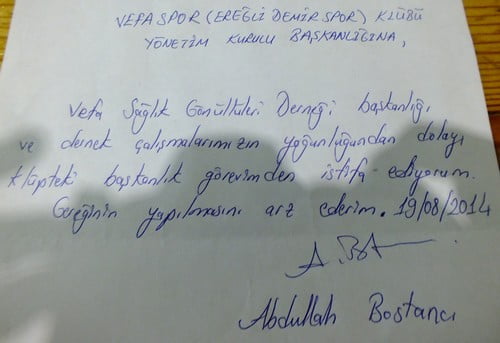 VEFA SPOR (EREĞLİ DEMİR SPOR) KLÜBÜ
YÖNETİM KURULU BAŞKANLIĞINA,
Vefa Sağlık Gönüllüleri Derneği başkanlığı
ve dernek çalışmalarımızın yoğunluğundan dolayı
klüpteki başkanlık görevimden istifa ediyorum.
Gereğinin yapılmasını arz ederim. 19/08/2014
A. Bot
Abdullah Bostancı